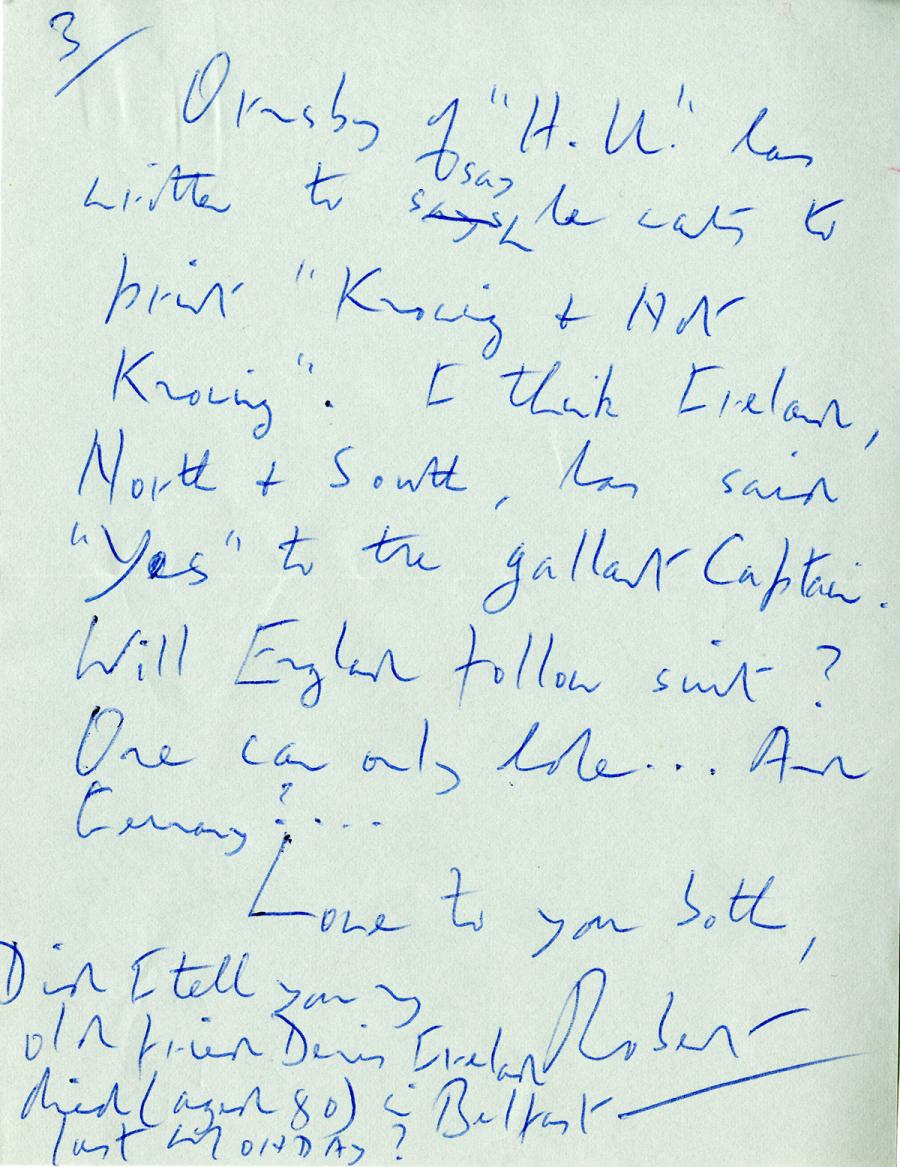 3/
Ormsby of "H.U." has
say
written to says h he wants to
print "Knowing + Not
Knowing". I think Ireland,
North + South, has said
"Yes" to the gallant Captain.
Will England follow suit?
One can only hope... And
Germany?....
Love to you both,
Robert
Did I tell you my
old friend Denis Ireland
died (aged 80) in Belfast
last MONDAY?